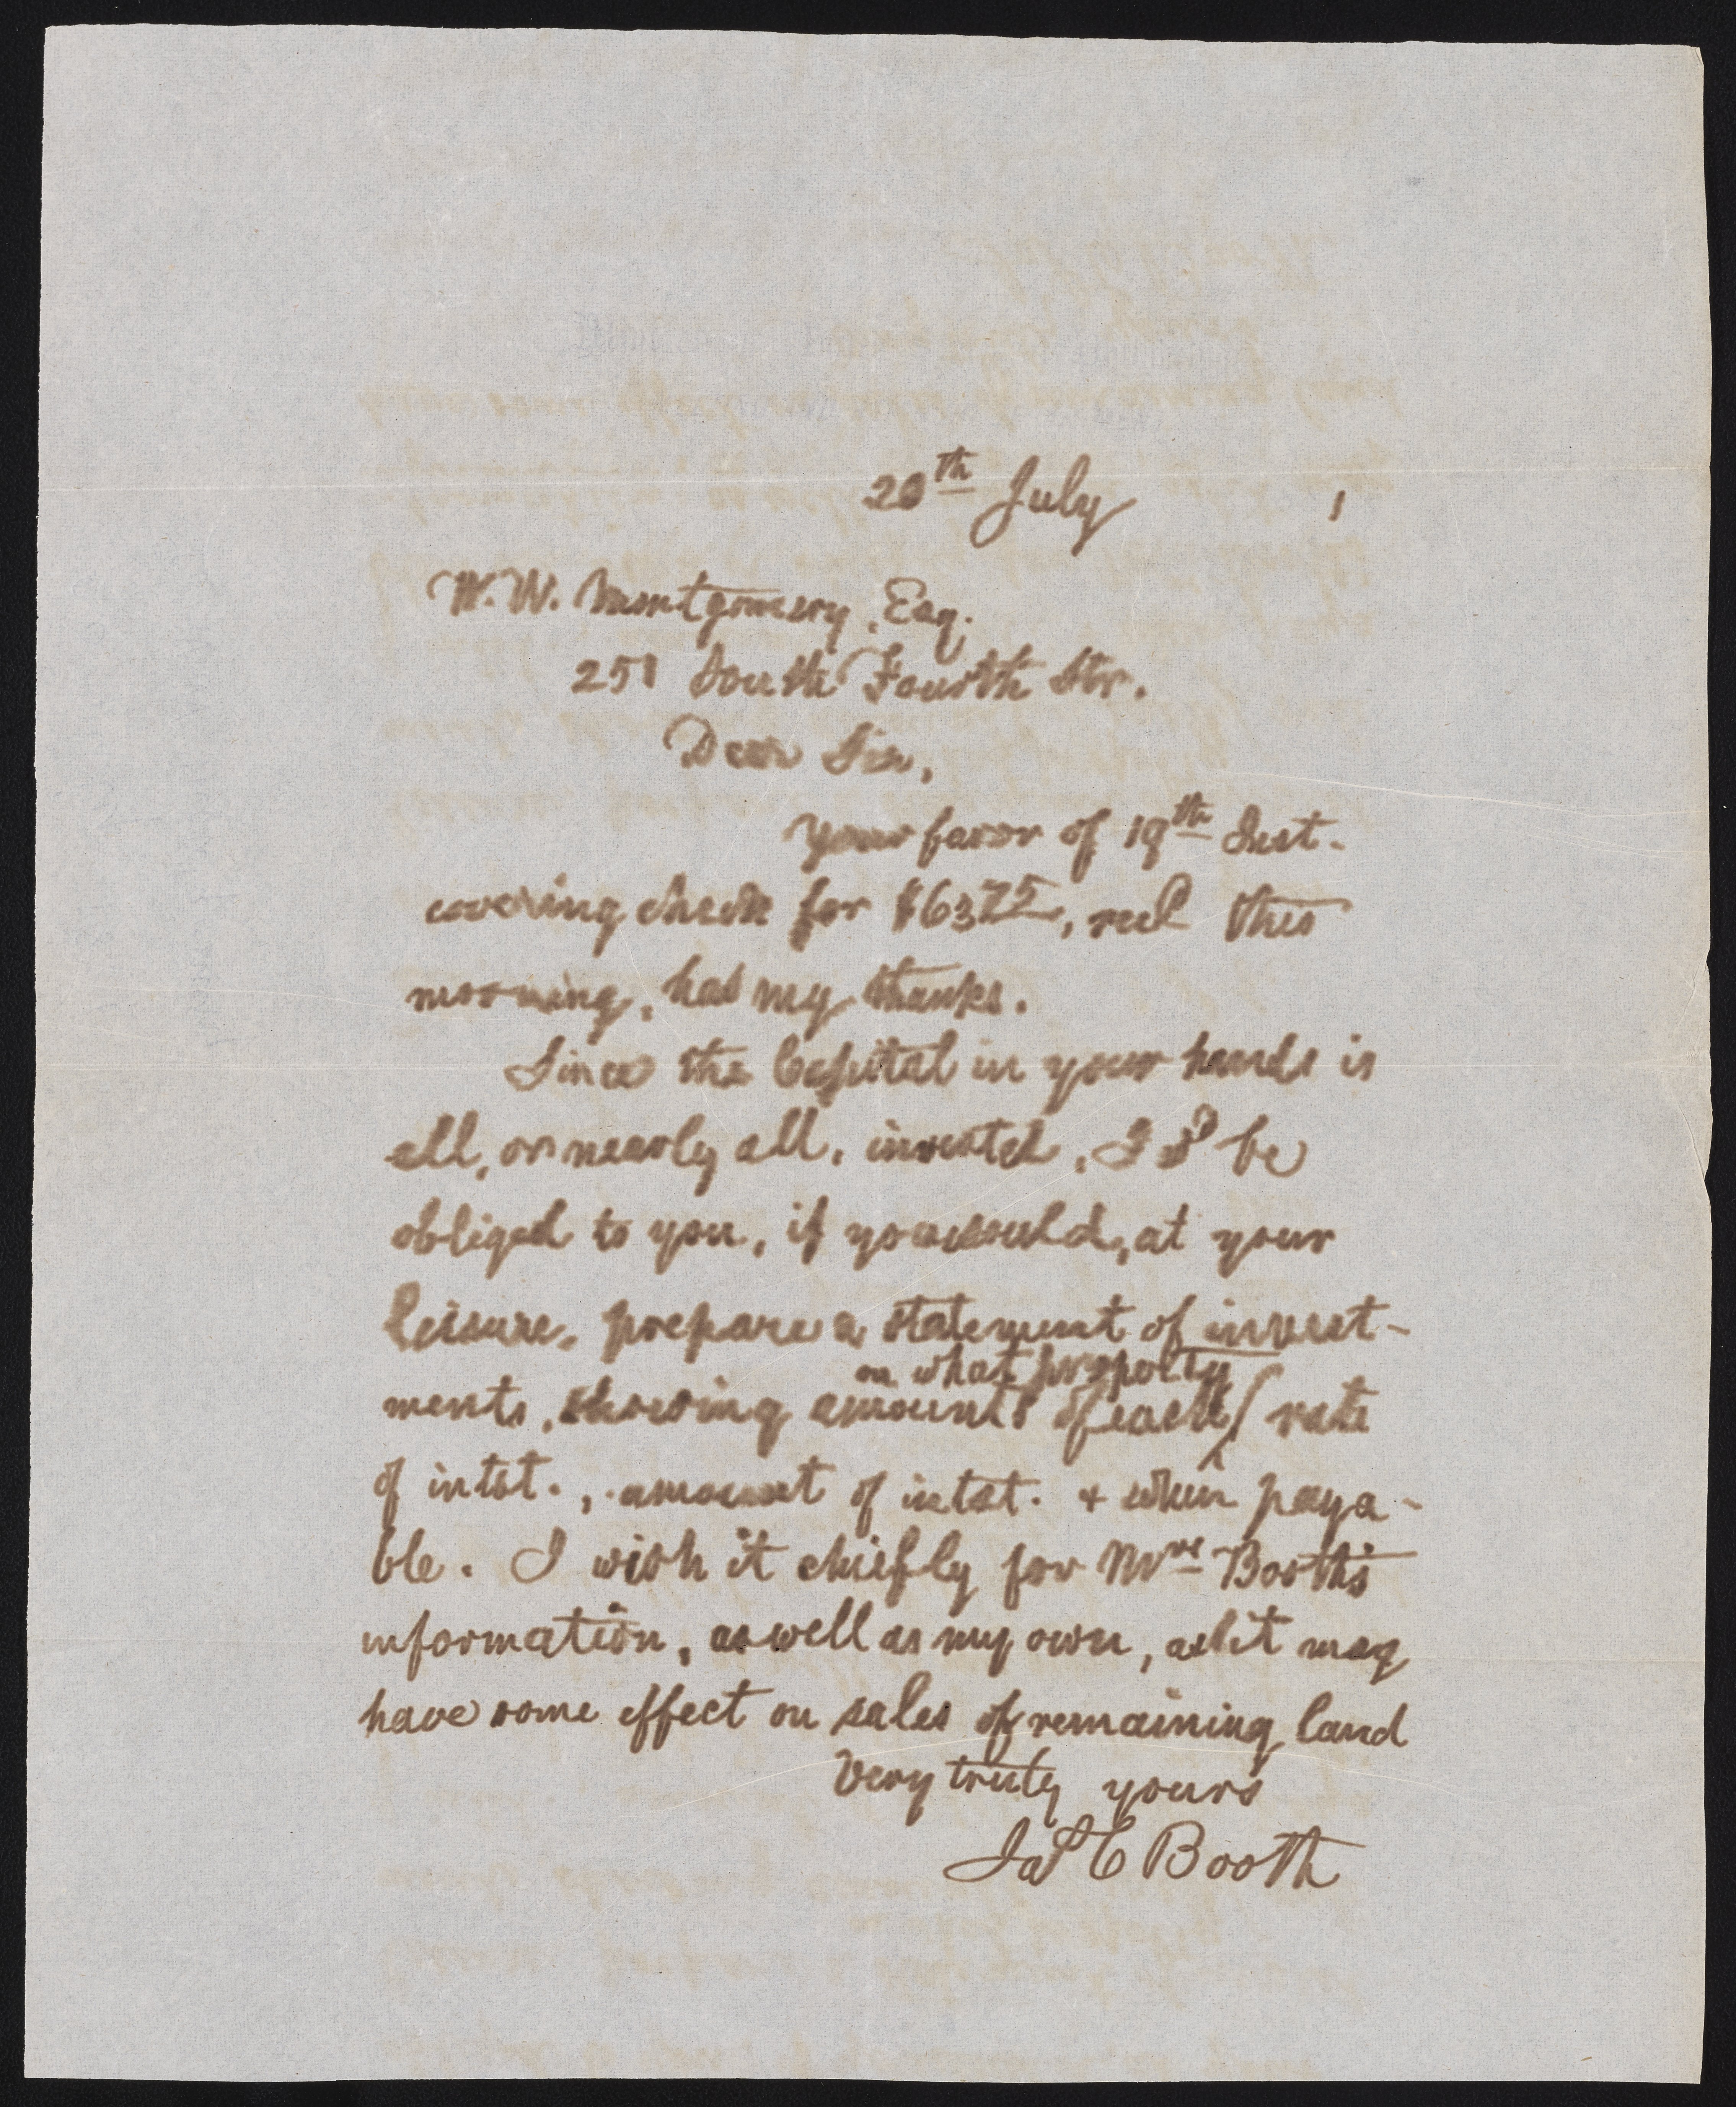 20th July 1
W. W. Montgomery, Esq.
251 South Fourth Str.
Dear Sir,
Your favor of 19th Inst.
covering check for $6375, recd this
morning, has my thanks.
Since the Capital in your hands is
all, or nearly all, invested, I sd be
obliged to you, if you would, at your
leisure, prepare a statement of invest-
on what property
ments, showing amounts of each, rate
of intst., amount of intst. + when paya-
ble. I wish it chiefly for Mrs Booth's
information, as well as my own, as it may
have some effect on sales of remaining land
Very truly yours
Jas C Booth